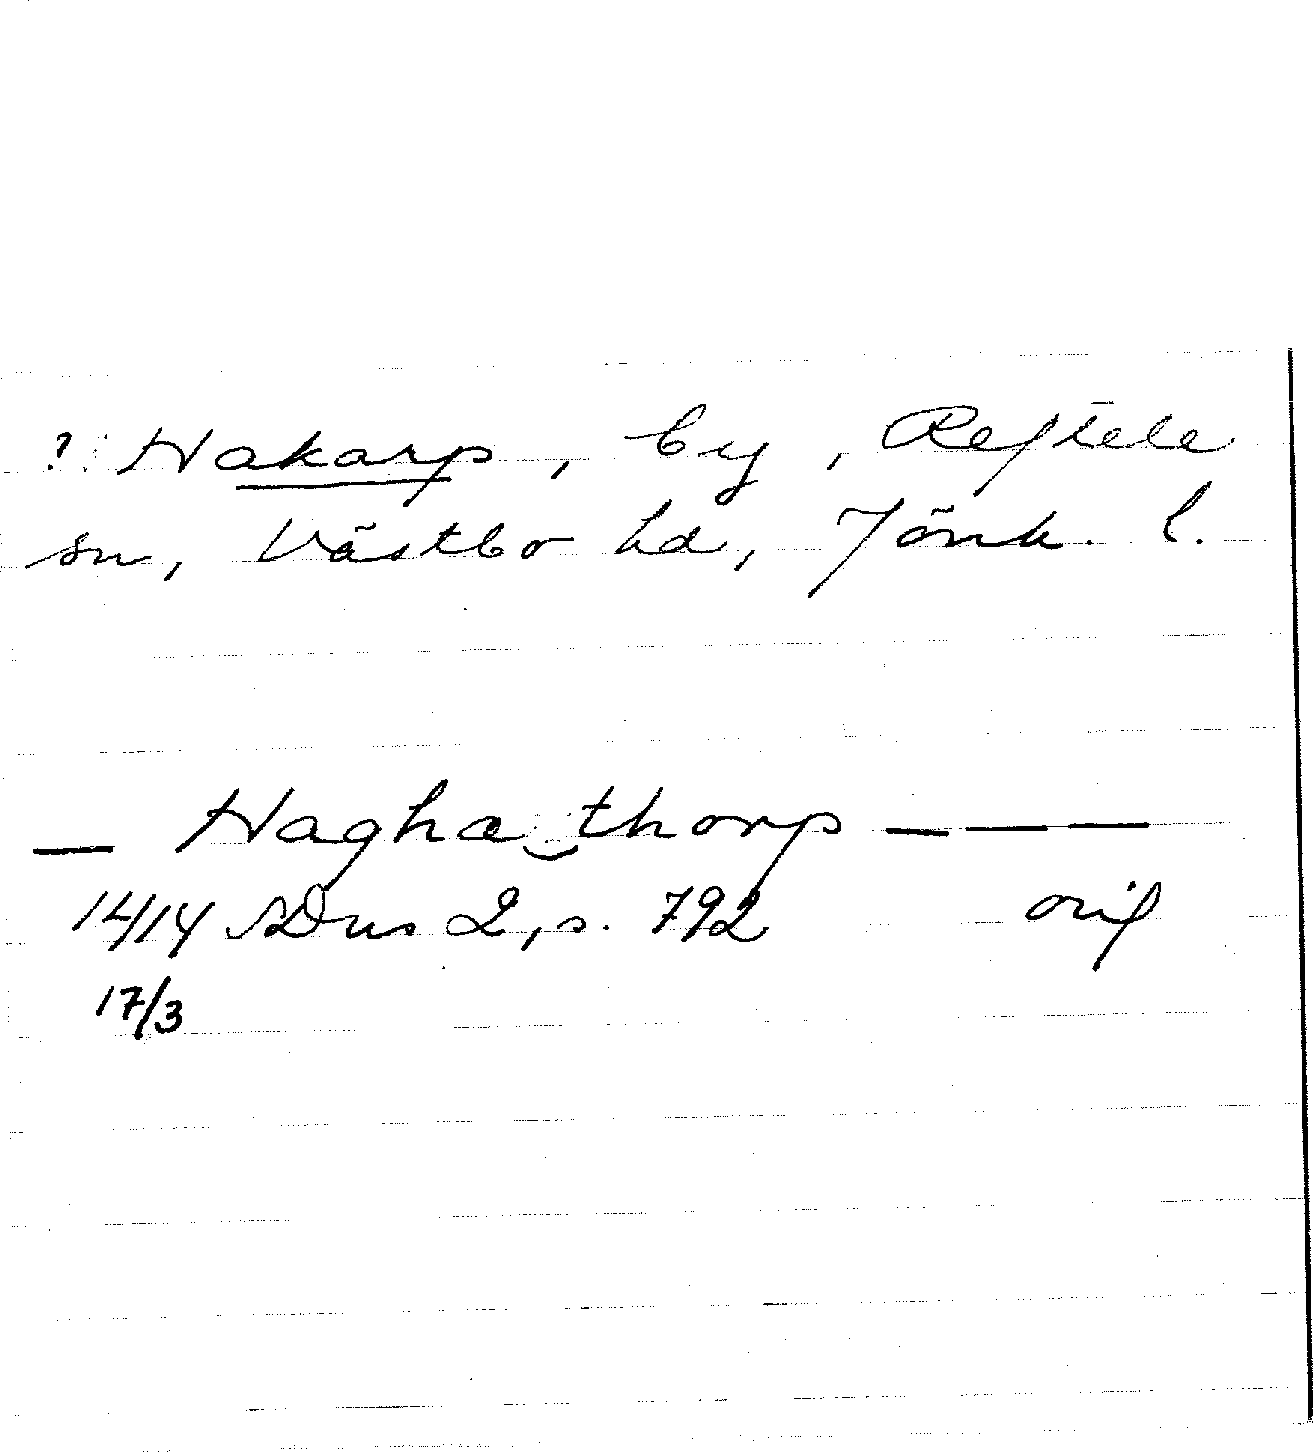 ? Hakarp, by, Reftele
sn, Västbo hd, Jönk. l.
— Hagha thorp — — —
1414 SDns 2, s. 792 orig
17/3